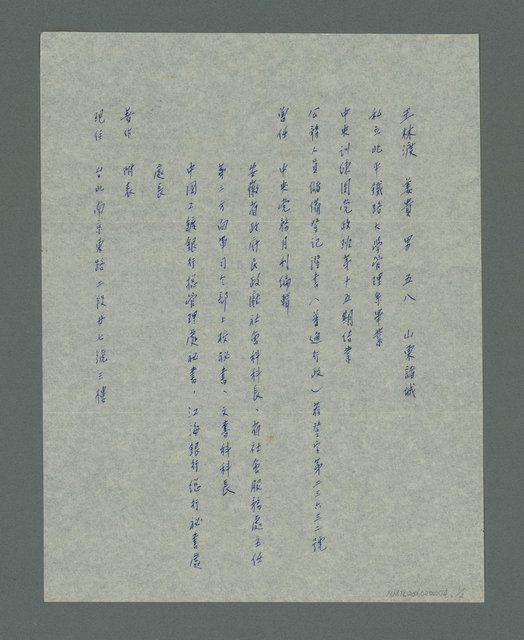 王林渡 姜貴 男 五八 山東諸城
私立北平鐵路大學管理系畢業
中央訓練團党政班第十五期结業
公務人員儲備登记證書(普通行政)蓉登字第二三六三二號
曾任 中央党務月刊编輯
安徽省政府民政廳社會科科長、省社會服務處主任
第三方面軍司令部上校秘書、文書科科長
中國工鑛銀行總管理處秘書，江海銀行總行秘書處
處長
著作 附表
現任 台北南京東路二段廿七號三樓